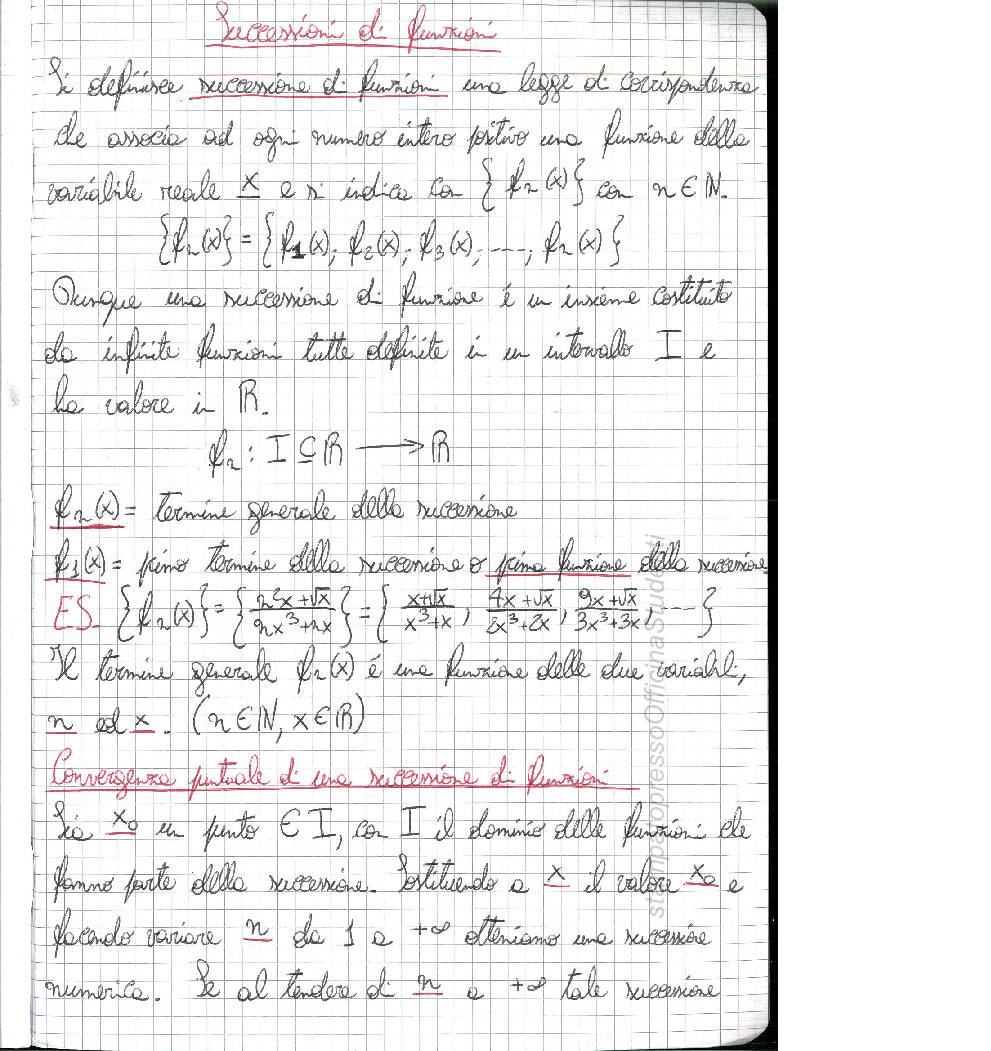 Successioni di funzioni
Si definisce successione di funzioni una legge di corrispondenza
che associa ad ogni numero intero positivo una funzione della
variabile reale x e si indica con {fn(x)} con n∈ℕ.
{fn(x)} = {f1(x); f2(x); f3(x); ----; fn(x)}
Dunque una successione di funzione é un insieme costituito
da infinite funzioni tutte definite in un intervallo I e
ha valore in ℝ.
fn : I ⊆ ℝ ⟶ ℝ
fn(x) = termine generale della successione
f1(x) = primo termine della successione o prima funzione della successione
ES. {fn(x)} = {(n²x+√x)/(nx³+nx)} = {(x+√x)/(x³+x), (4x+√x)/(2x³+2x), (9x+√x)/(3x³+3x), ----}
Il termine generale fn(x) é una funzione delle due variabili,
n ed x. (n∈ℕ, x∈ℝ)
Convergenza puntuale di una successione di funzioni
Sia x0 un punto ∈ I, con I il dominio delle funzioni che
fanno parte della successione. Sostituendo a x il valore x0 e
facendo variare n da 1 a +∞ otteniamo una successione
numerica. Se al tendere di n a +∞ tale successione
stampatopressoOfficinaStudenti